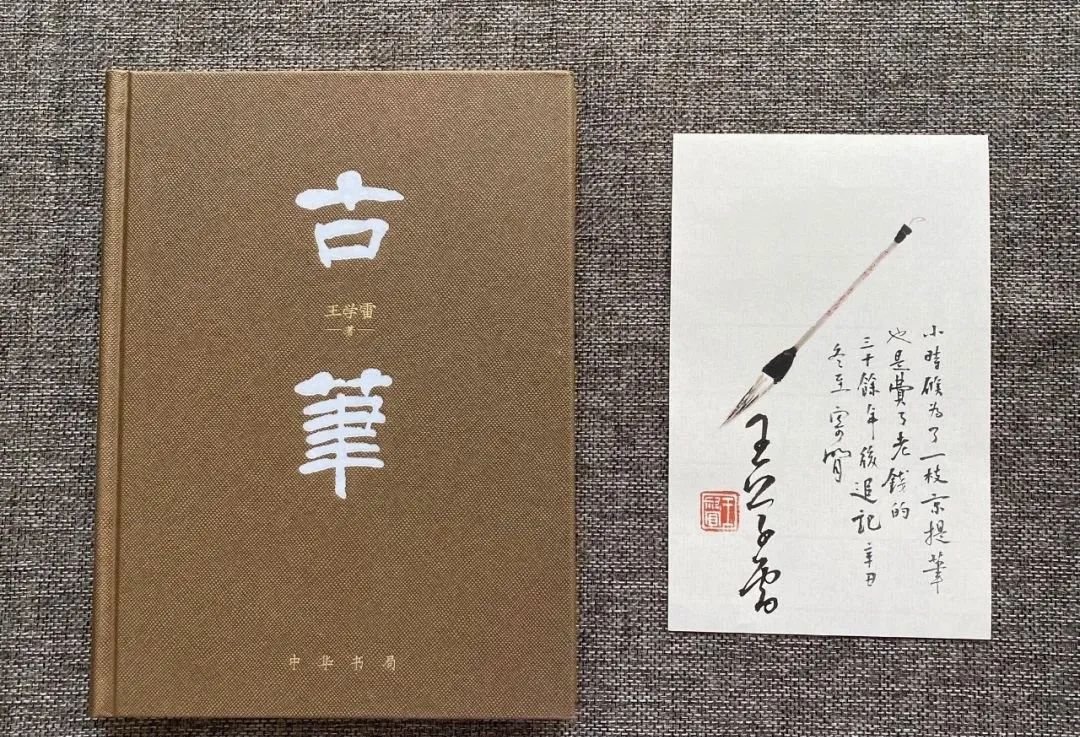 古筆
王学雷
著
中华书局
小時候为了一枝京提筆
也是費了老錢的
三十餘年後追記 辛丑
冬至 寄閒
王学雷